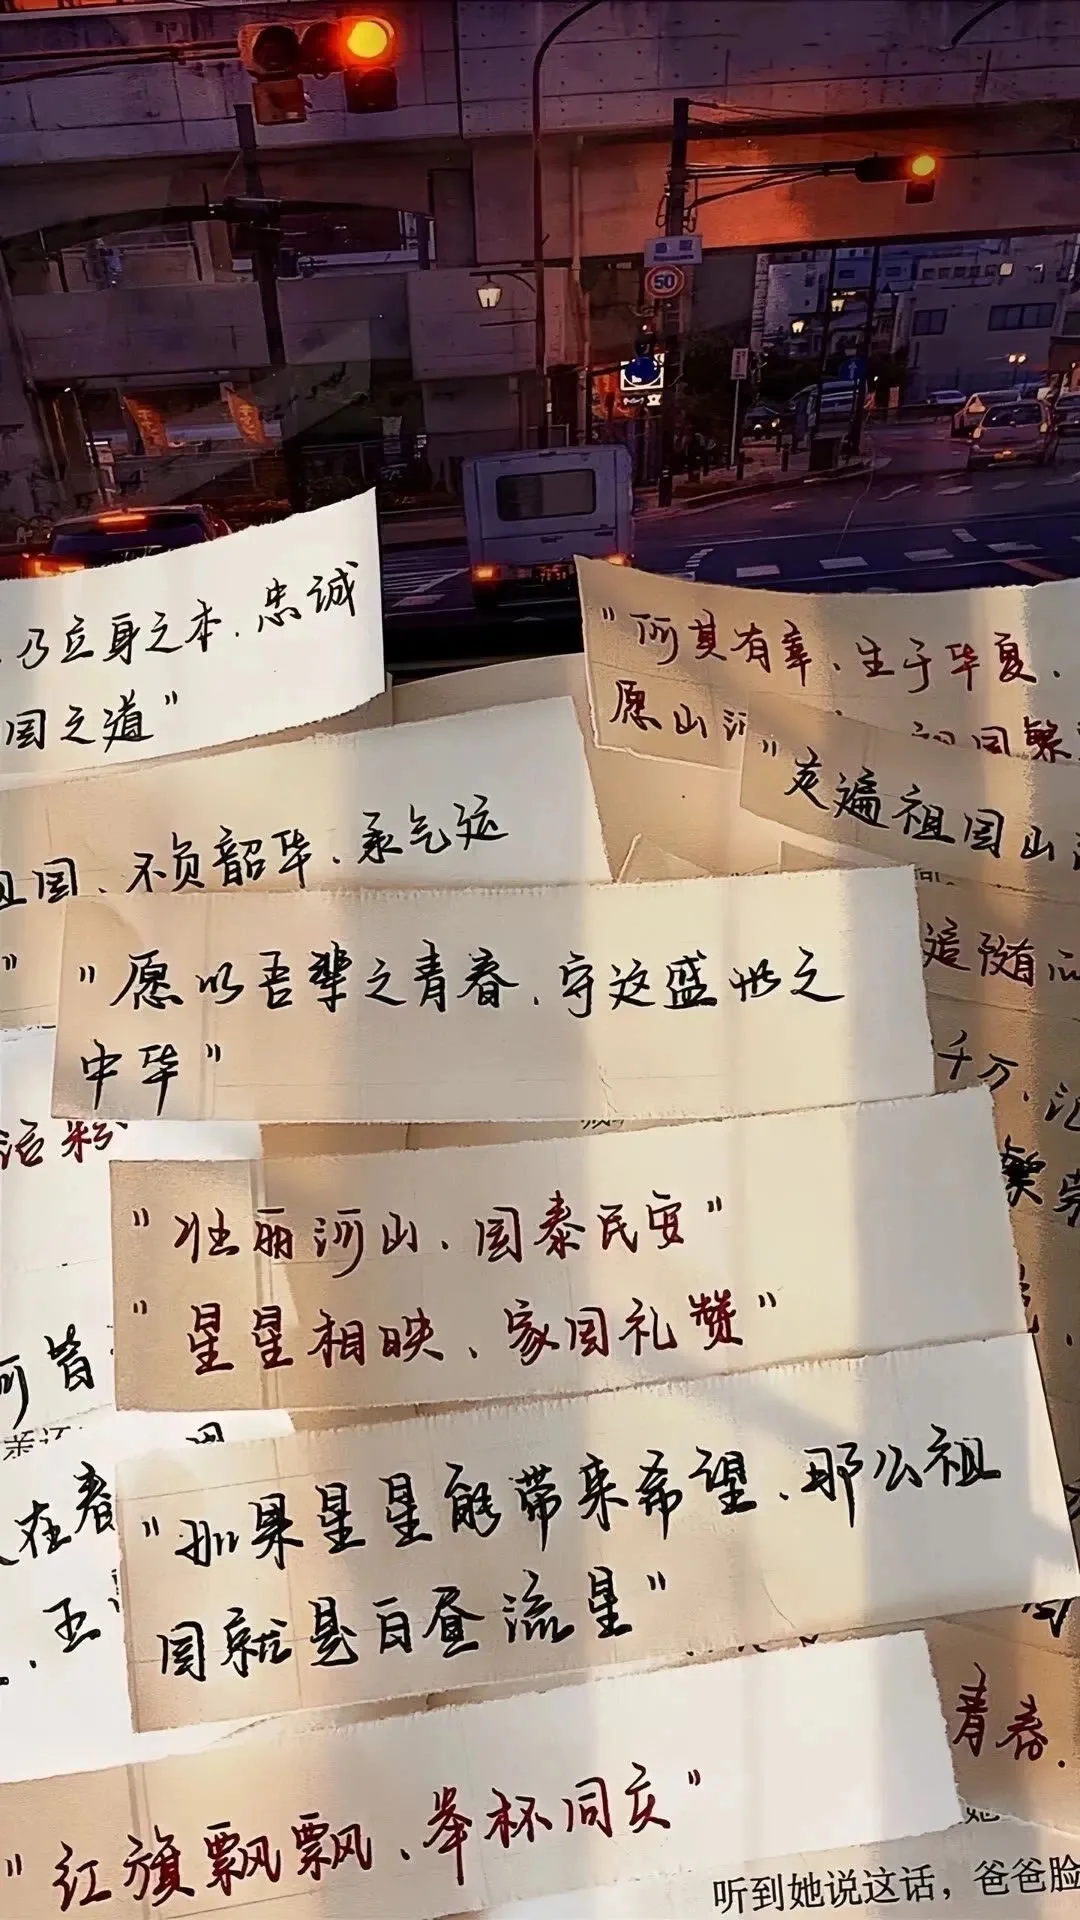 50
乃立身之本、忠诚
国之道”
“何其有幸、生于华夏、
愿山河
祖国繁
“走遍祖国山河
祖国、不负韶华、承气运
”
“愿以吾辈之青春、守这盛世之
中华”
追随
千万、汇
繁荣
活粉
“壮丽河山、国泰民安”
“星星相映、家国礼赞”
河皆
在春
、五
“如果星星能带来希望、那么祖
国就是白昼流星”
青春、
“红旗飘飘、举杯同庆”
她
听到她说这话，爸爸脸